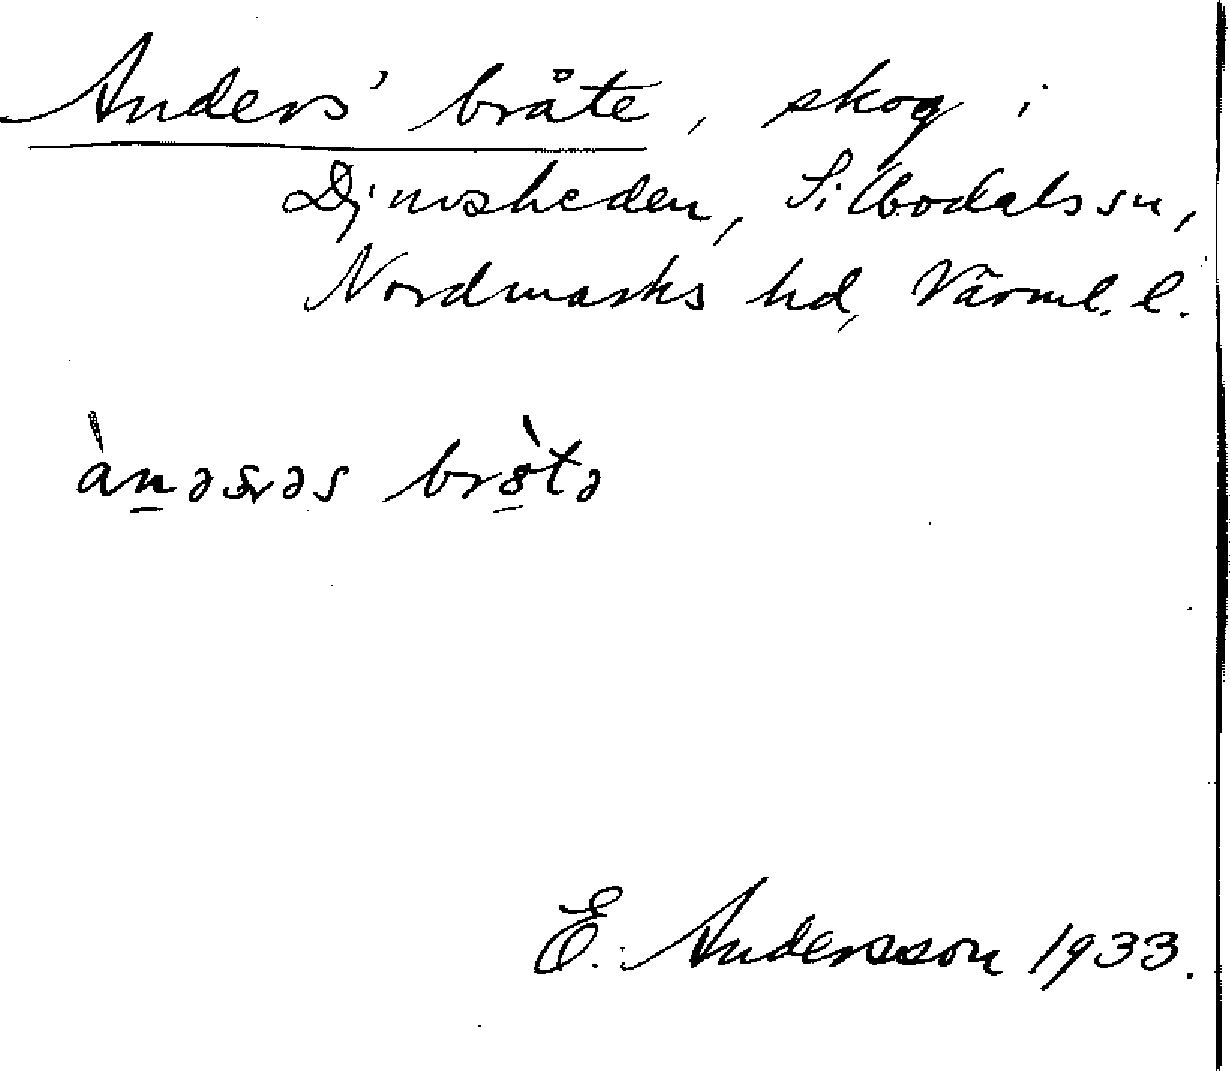 Anders' bråte, skog i
Djuvsheden, Silbodals sn,
Nordmarks hd, Värml. l.
bròtə
E. Andersson 1933.